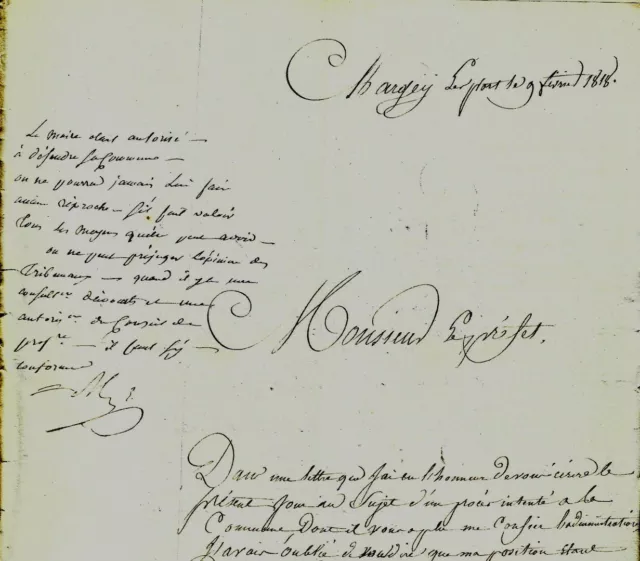 Chargey Les port le 9 février 1818.
Le maire etant autorisé —
à défendre sa Commune —
on ne pourra jamais lui fair
aucun réproche — s'il fait valoir
tous les moyens qu'elle peut avoir —
on ne peut préjuger l'opinion des
Tribunaux — quand il y a une
consult.on d'avocats et une
autoris.on du Conseil de
pref.re — il faut s'y —
conformer
Monsieur Le préfet.
Dans une lettre que J'ai eu l'honneur de vous écrire le
présent Jour au Sujet d'un procès intenté a la
Commune Dont il vous a plu me Confier l'administration
J'avais oublié de vous dire que ma position étant